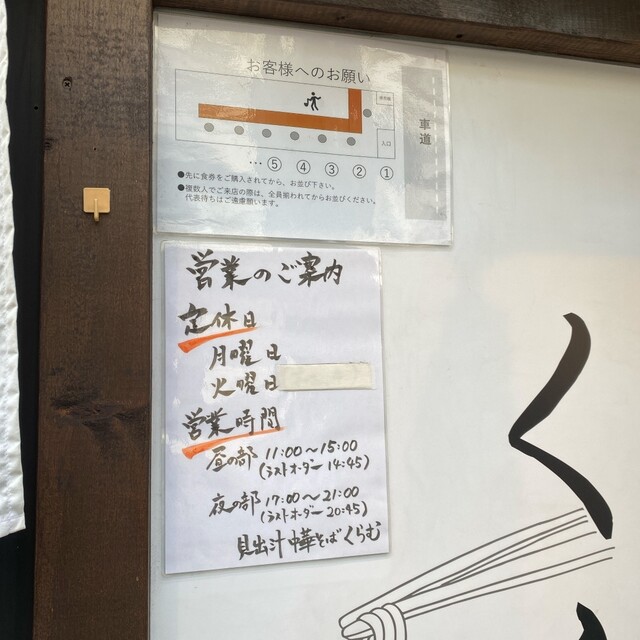 お客様へのお願い
車道
入口
… ⑤ ④ ③ ② ①
●先に食券をご購入されてから、お並び下さい。
●複数人でご来店の際は、全員揃われてからお並びください。
代表待ちはご遠慮願います。
営業のご案内
定休日
月曜日
火曜日
営業時間
昼の部 11:00～15:00
(ラストオーダー 14:45)
夜の部 17:00～21:00
(ラストオーダー 20:45)
見出汁中華そばくらむ
く